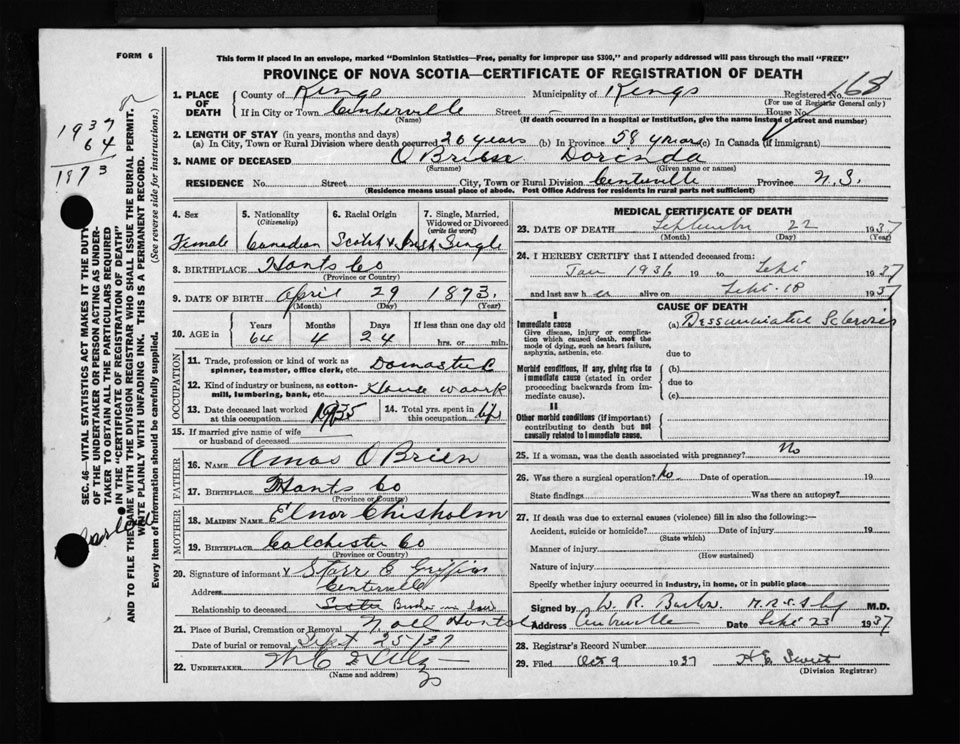 FORM 6
This form if placed in an envelope, marked "Dominion Statistics—Free, penalty for improper use $300," and properly addressed will pass through the mail "FREE"
PROVINCE OF NOVA SCOTIA—CERTIFICATE OF REGISTRATION OF DEATH
1937
64
1873
SEC. 46—VITAL STATISTICS ACT MAKES IT THE DUTY
OF THE UNDERTAKER OR PERSON ACTING AS UNDER-
TAKER TO OBTAIN ALL THE PARTICULARS REQUIRED
IN THE "CERTIFICATE OF REGISTRATION OF DEATH"
AND TO FILE THE SAME WITH THE DIVISION REGISTRAR WHO SHALL ISSUE THE BURIAL PERMIT.
WRITE PLAINLY WITH UNFADING INK. THIS IS A PERMANENT RECORD.
Every item of information should be carefully supplied. (See reverse side for instructions.)
1. PLACE OF DEATH
County of Kings Municipality of Kings Registered No. 68
(For use of Registrar General only)
If in City or Town Centerville Street — House No.
(Name) (If death occurred in a hospital or institution, give the name instead of street and number)
2. LENGTH OF STAY (in years, months and days)
(a) In City, Town or Rural Division where death occurred 20 years (b) In Province 58 years (c) In Canada (if immigrant)
3. NAME OF DECEASED O'Brien Dorinda
(Surname) (Given name or names)
RESIDENCE No. Street City, Town or Rural Division Centerville Province N.S.
(Residence means usual place of abode. Post Office Address for residents in rural parts not sufficient)
4. Sex
Female
5. Nationality (Citizenship)
Canadian
6. Racial Origin
Scotch & Irish
7. Single, Married, Widowed or Divorced (write the word)
Single
8. BIRTHPLACE Hants Co
(Province or Country)
9. DATE OF BIRTH April 29 1873
(Month) (Day) (Year)
10. AGE in Years Months Days If less than one day old
64 4 24 hrs. or min.
OCCUPATION
11. Trade, profession or kind of work as spinner, teamster, office clerk, etc. Domastic
12. Kind of industry or business, as cotton-mill, lumbering, bank, etc. House
13. Date deceased last worked at this occupation 1935
14. Total yrs. spent in this occupation life
15. If married give name of wife or husband of deceased
FATHER
16. NAME Amos O'Brien
17. BIRTHPLACE Hants Co
(Province or Country)
MOTHER
18. MAIDEN NAME Elnor Chisholm
19. BIRTHPLACE Colchester Co
(Province or Country)
20. Signature of informant x Starr C Griffin
Address Centerville
Relationship to deceased in law
21. Place of Burial, Cremation or Removal Noel Hants
Date of burial or removal Sept 25/37
22. UNDERTAKER
(Name and address)
MEDICAL CERTIFICATE OF DEATH
23. DATE OF DEATH September 22 1937
(Month) (Day) (Year)
24. I HEREBY CERTIFY that I attended deceased from:
Jan 1936 19 to Sept 1937
and last saw her alive on Sept. 18 1937
CAUSE OF DEATH
I
Immediate cause
Give disease, injury or complication which caused death, not the mode of dying, such as heart failure, asphyxia, asthenia, etc
(a) Disseminated Sclerosis
due to
Morbid conditions, if any, giving rise to immediate cause (stated in order proceeding backwards from immediate cause).
(b)
due to
(c)
II
Other morbid conditions (if important) contributing to death but not causally related to immediate cause.
25. If a woman, was the death associated with pregnancy? No
26. Was there a surgical operation? No Date of operation 19
State findings Was there an autopsy?
27. If death was due to external causes (violence) fill in also the following:—
Accident, suicide or homicide? Date of injury 19
(State which)
Manner of injury
(How sustained)
Nature of injury
Specify whether injury occurred in industry, in home, or in public place
Signed by M.D.
Address Centerville Date Sept 23 1937
28. Registrar's Record Number
29. Filed Oct 9 1937
(Division Registrar)